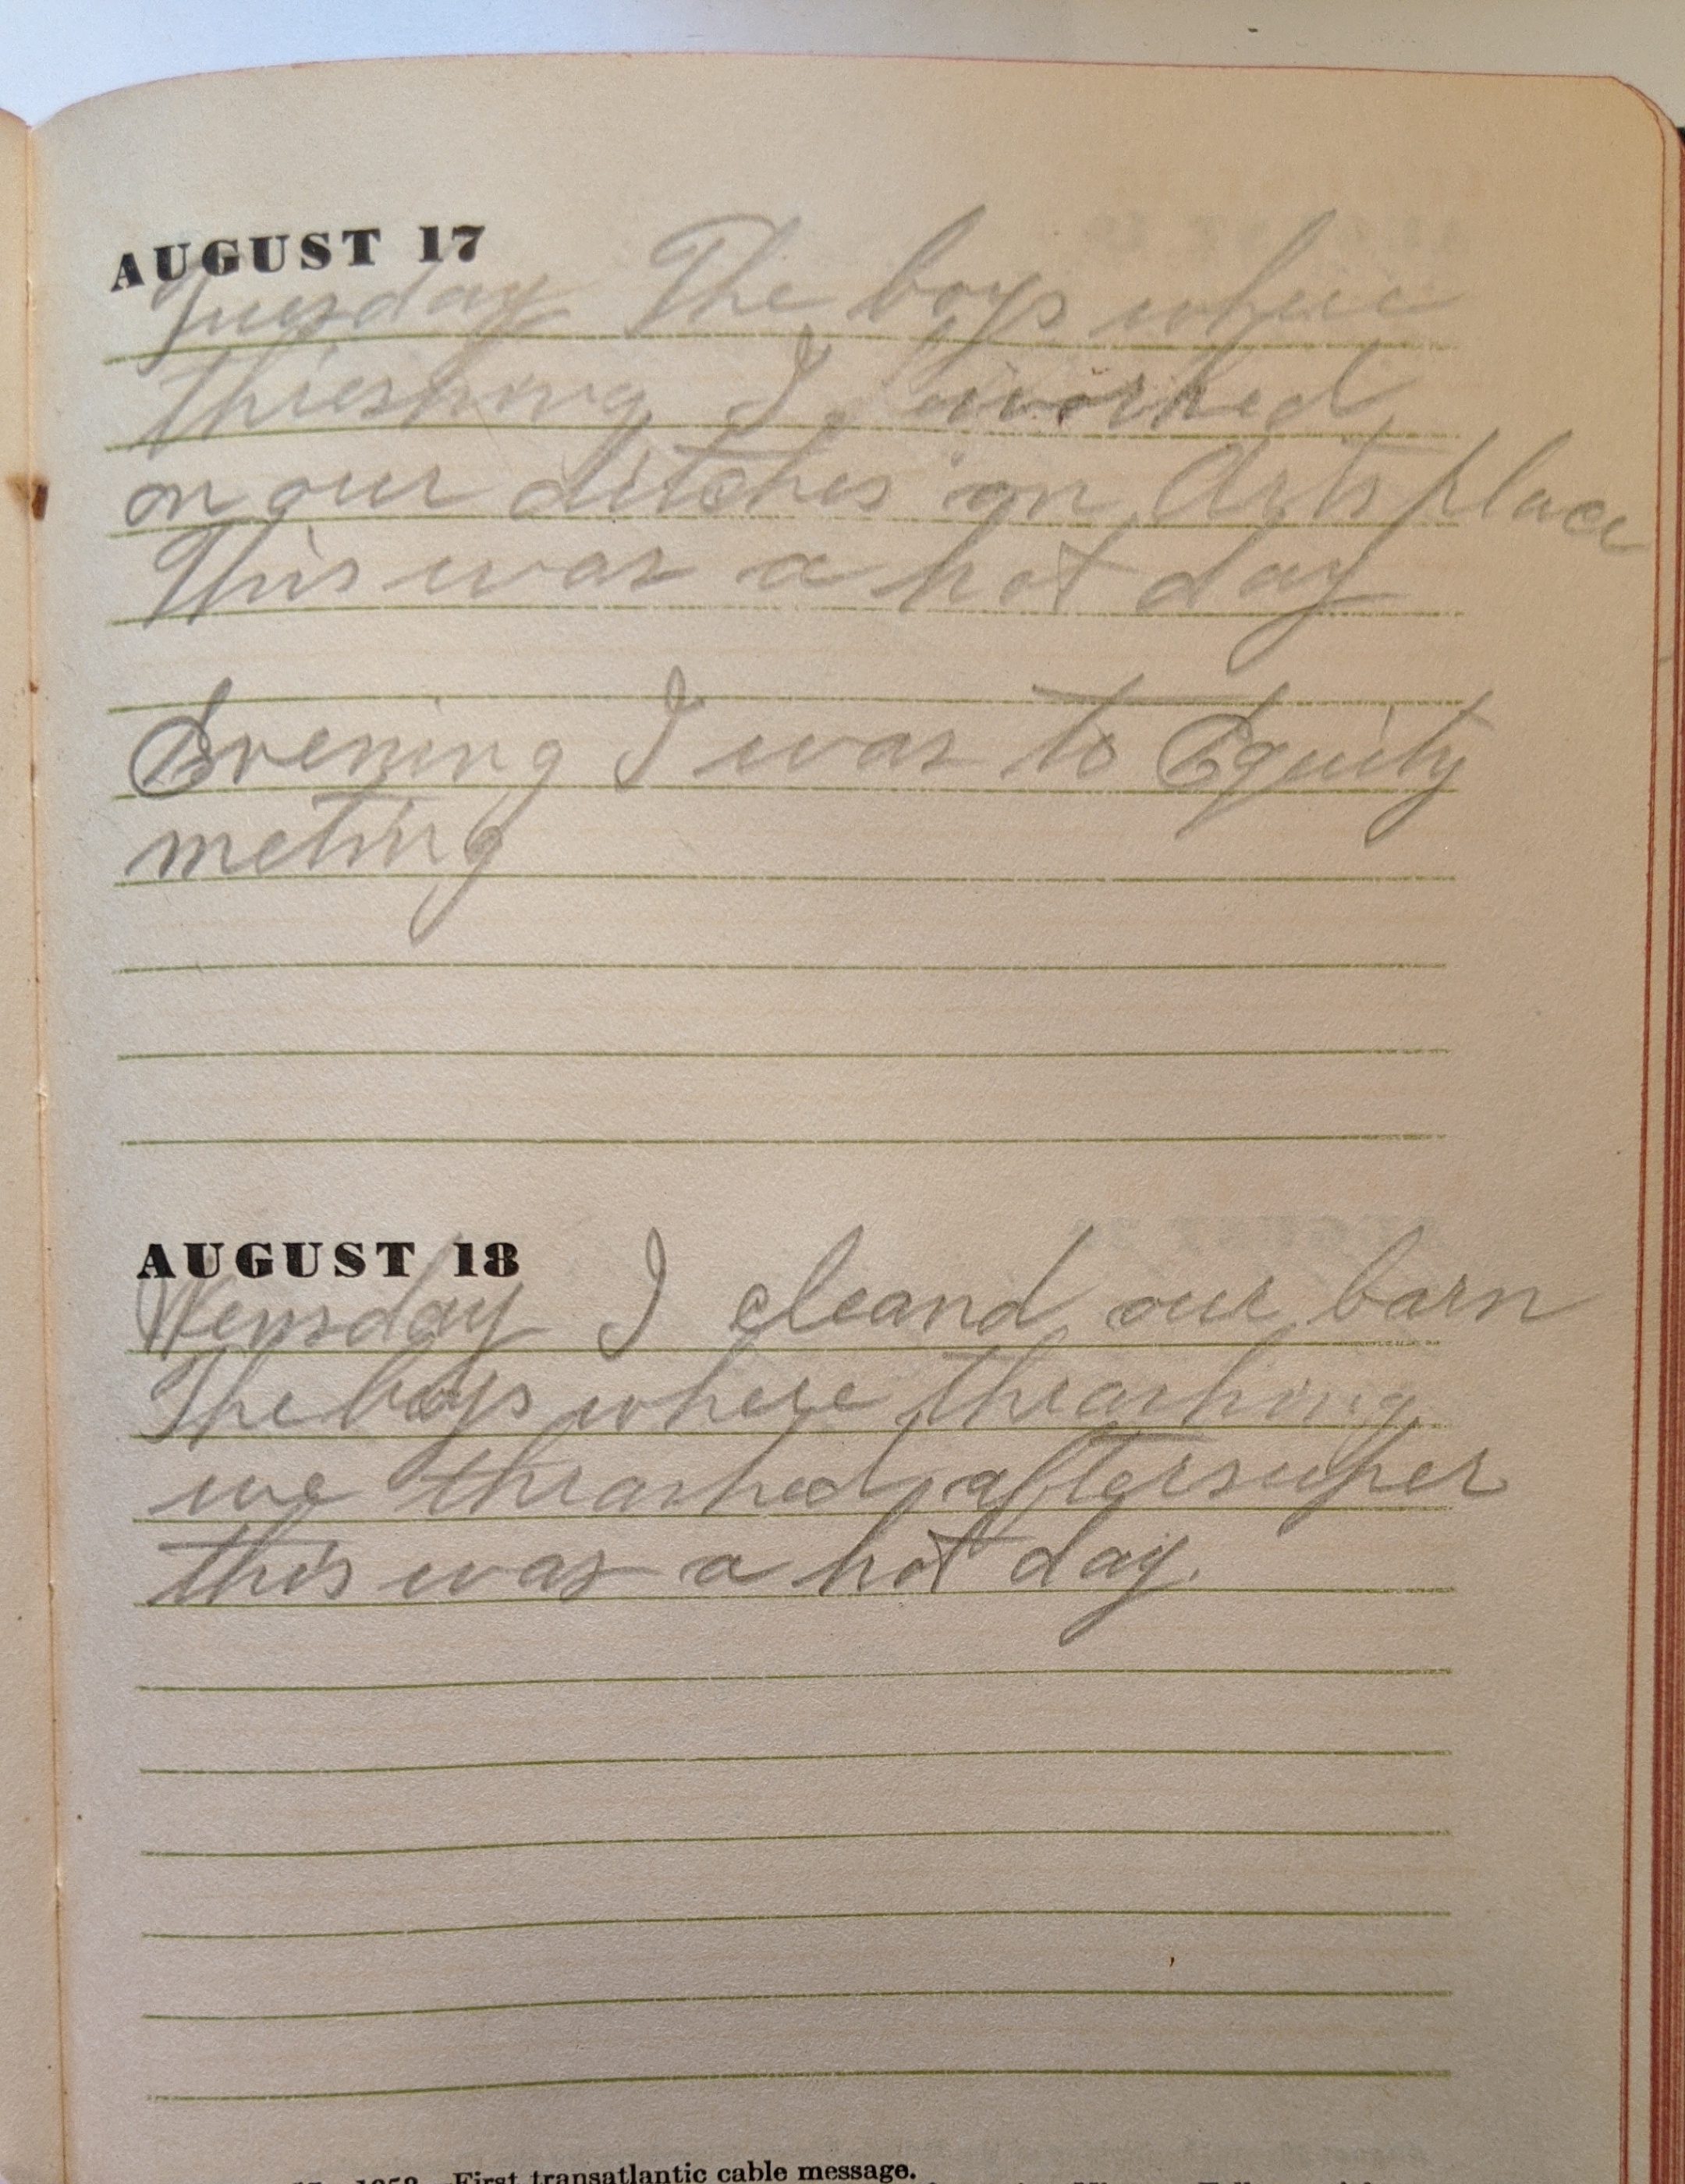 AUGUST 17
Tuesday The boys where
thieshing I worked
on our ditches on Arts place
This was a hot day
Evening I was to Equity
meting
AUGUST 18
Wensday I cleand our barn
The boys where thrashing
we thrashed after super
this was a hot day.
First transatlantic cable message.